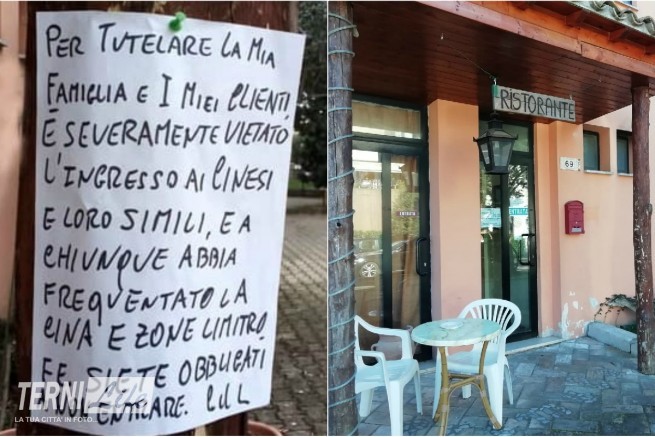 PER TUTELARE LA MIA
FAMIGLIA E I MIEI CLIENTI
È SEVERAMENTE VIETATO
L'INGRESSO AI CINESI
E LORO SIMILI, E A
CHIUNQUE ABBIA
FREQUENTATO LA
CINA E ZONE LIMITRO
FE SIETE OBBLIGATI
TERNI
LA TUA CITTA' IN FOTO
RISTORANTE
69